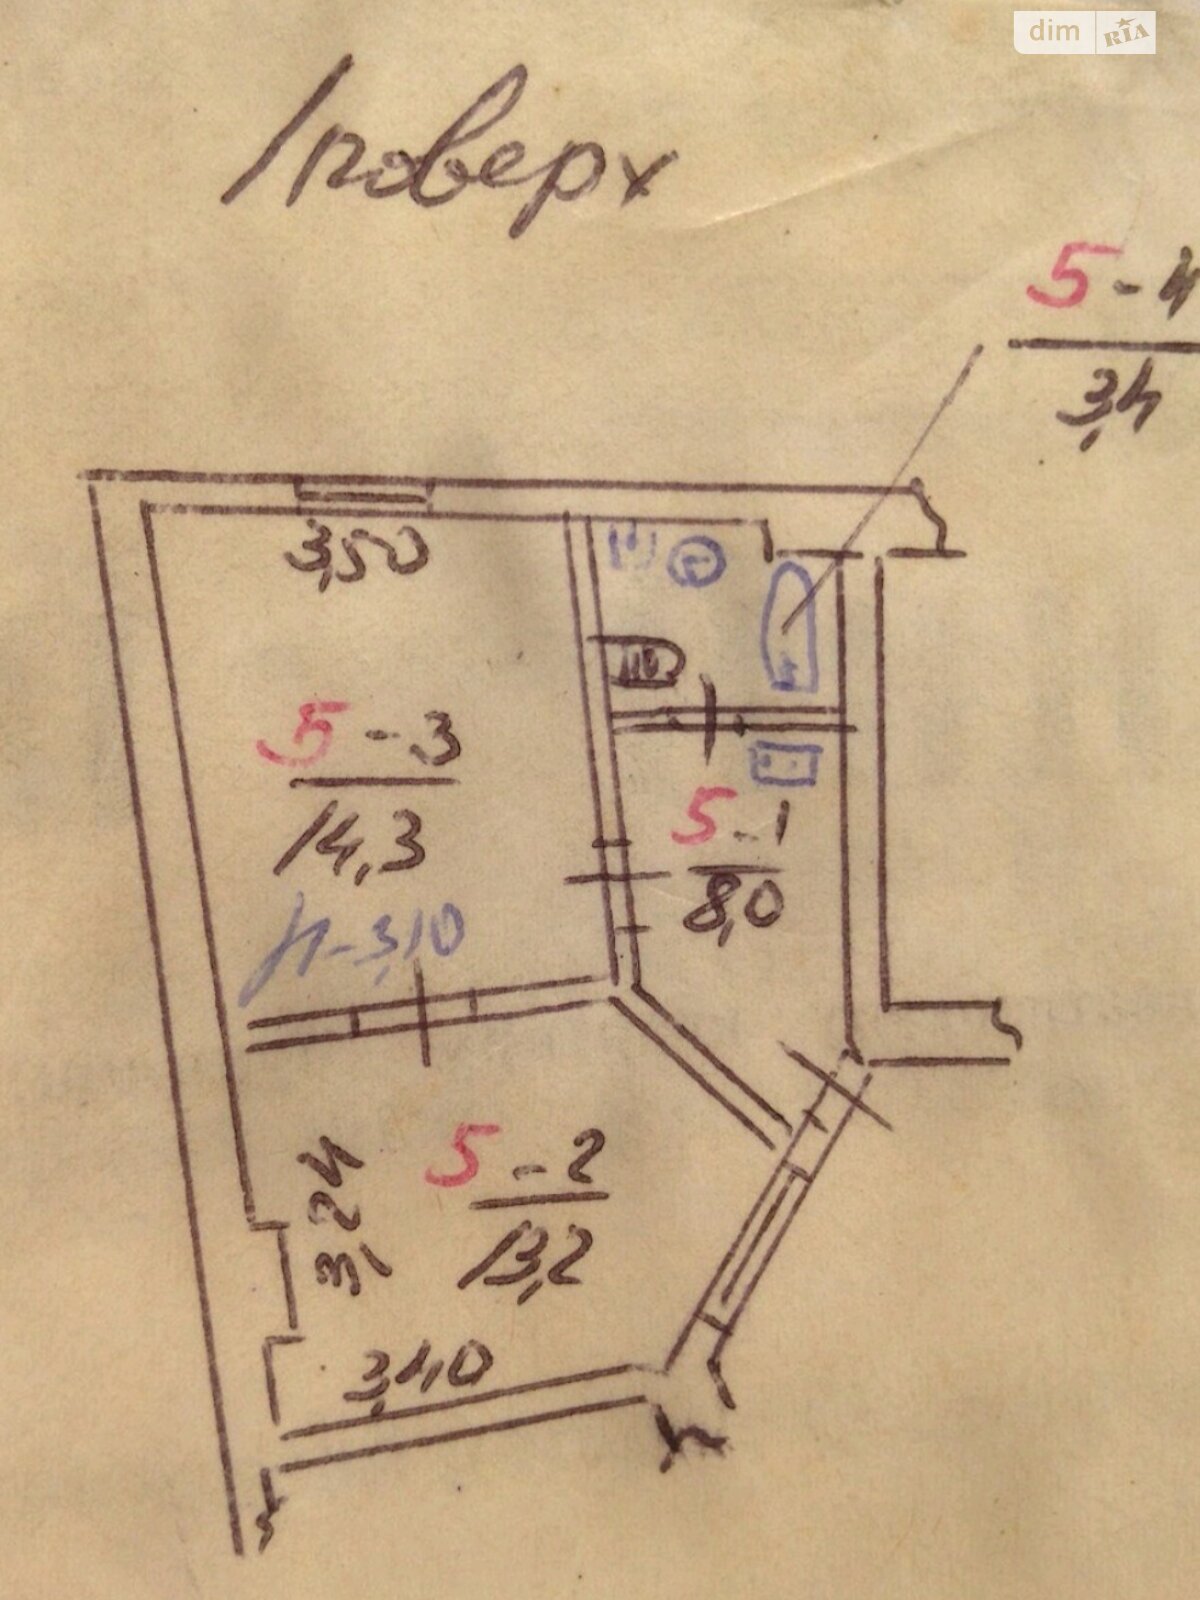 dim RIA
1 поверх
5-4
3,4
3,50
5-3
14,3
h-3,10
5-1
8,0
5-2
13,2
3,24
3,40